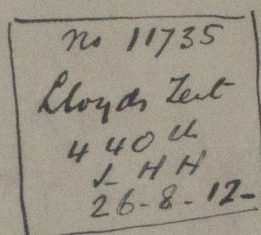 No 11735
Lloyds Test
440 lb
J H H
26-8-12